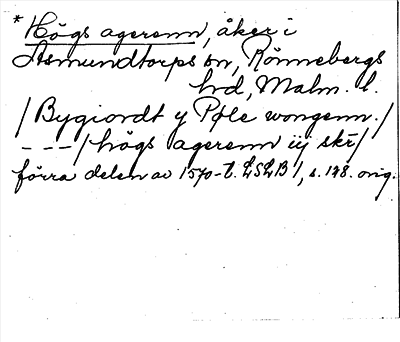 * Högs agerenn, åker i
Asmundtorps sn, Rönnebergs
hd, Malm. l.
/ Bygiordt y Pole wongenn. /
- - - / högs agerenn iij skr /
förra delen av 1570-t. LSLB 1, s. 178. orig.